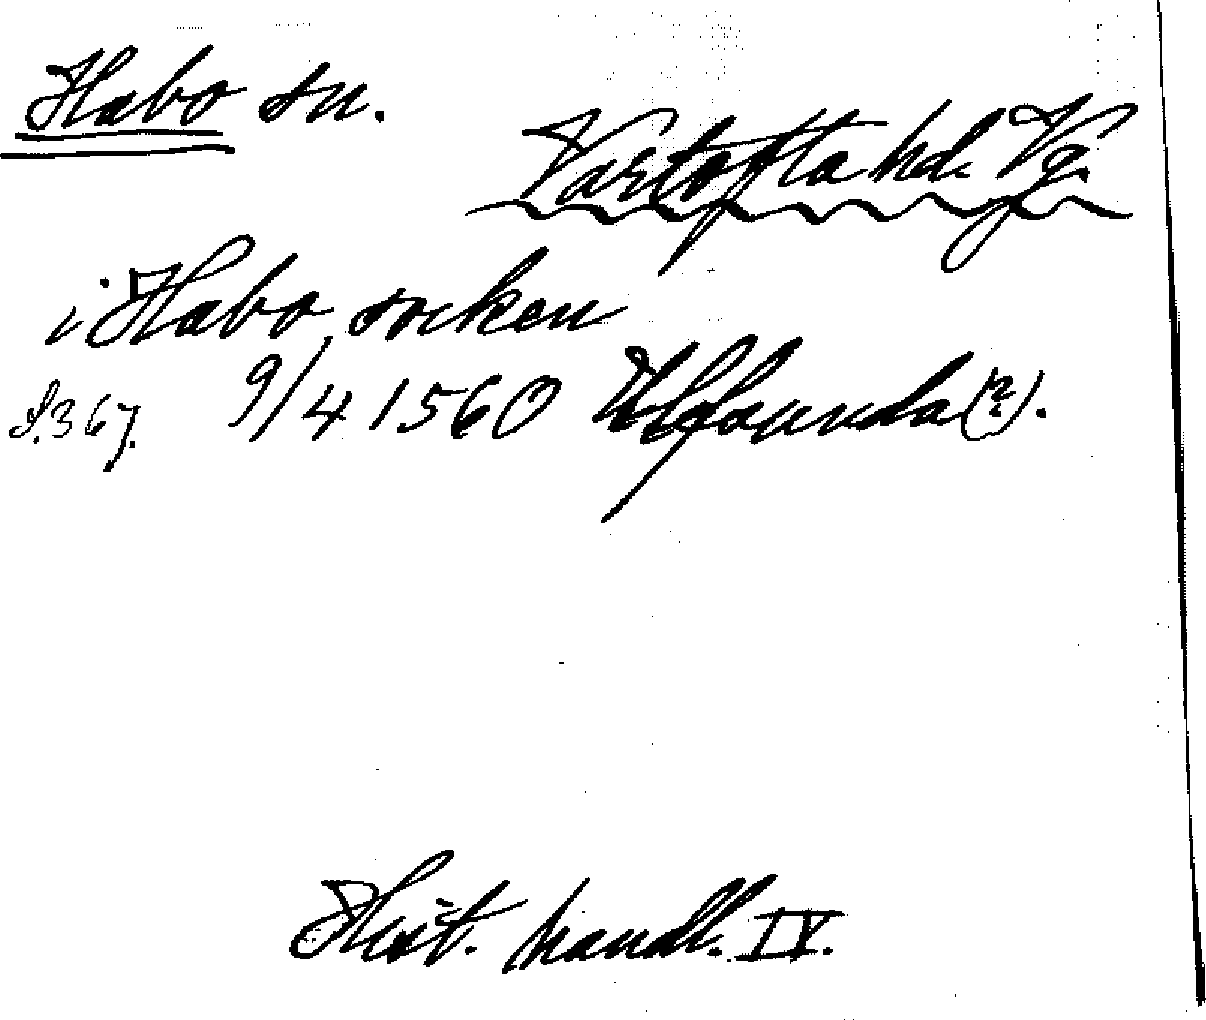 Habo sn.
Vartofta hd. Vg.
i Habo socken
S.367. 9/4 1560 Ulfsunda (?).
Hist. handl. IV.